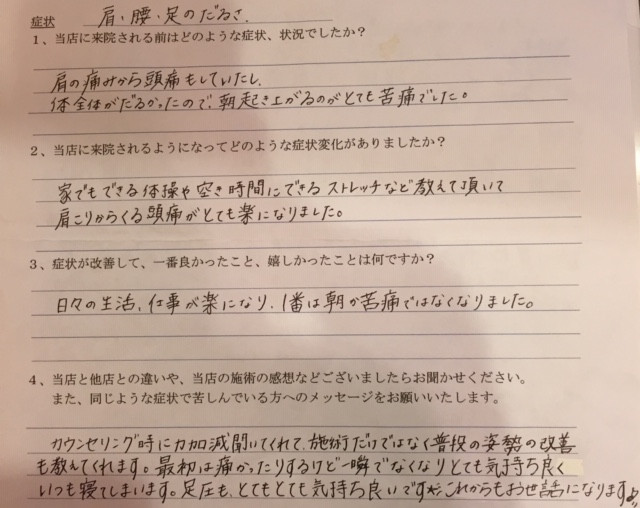 症状 肩、腰、足のだるさ、
1、当店に来院される前はどのような症状、状況でしたか？
肩の痛みから頭痛もしていたし、
体全体がだるかったので、朝起き上がるのがとても苦痛でした。
2、当店に来院されるようになってどのような症状変化がありましたか？
家でもできる体操や空き時間にできるストレッチなど教えて頂いて
肩こりからくる頭痛がとても楽になりました。
3、症状が改善して、一番良かったこと、嬉しかったことは何ですか？
日々の生活、仕事が楽になり、1番は朝が苦痛ではなくなりました。
4、当店と他店との違いや、当店の施術の感想などございましたらお聞かせください。
また、同じような症状で苦しんでいる方へのメッセージをお願いいたします。
カウンセリング時に力加減聞いてくれて、施術だけではなく普段の姿勢の改善
も教えてくれます。最初は痛かったりするけど一瞬でなくなりとても気持ち良く
いつも寝てしまいます。足圧も、とてもとても気持ち良いです☆これからもお世話になります♪!!